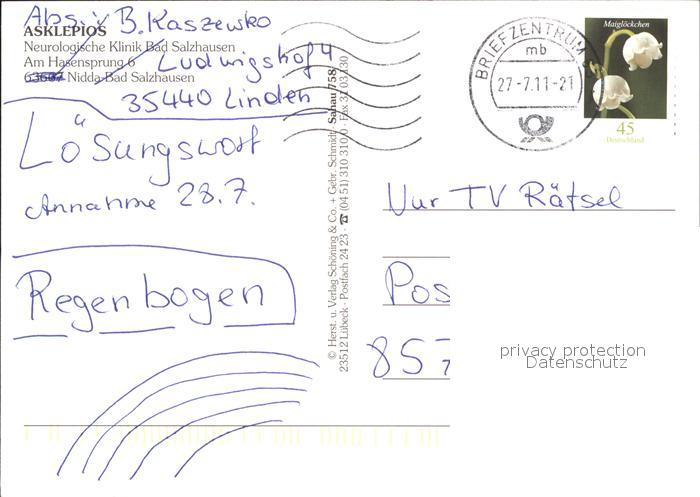 Abs.: B. Kaszewko
ASKLEPIOS
Neurologische Klinik Bad Salzhausen
Am Hasensprung 6
63667 Nidda-Bad Salzhausen
Ludwigshof 4
35440 Linden
Lösungswort
Annahme 28.7.
Regenbogen
© Herst. u. Verlag Schöning & Co. + Gebr. Schmidt · Sahau 758
23512 Lübeck · Postfach 24 23 · ☎ (04 51) 310 310
BRIEFZENTRUM
mb
27-7.11-21
Maiglöckchen
45
Deutschland
Nur TV Rätsel
Pos
857
privacy protection
Datenschutz